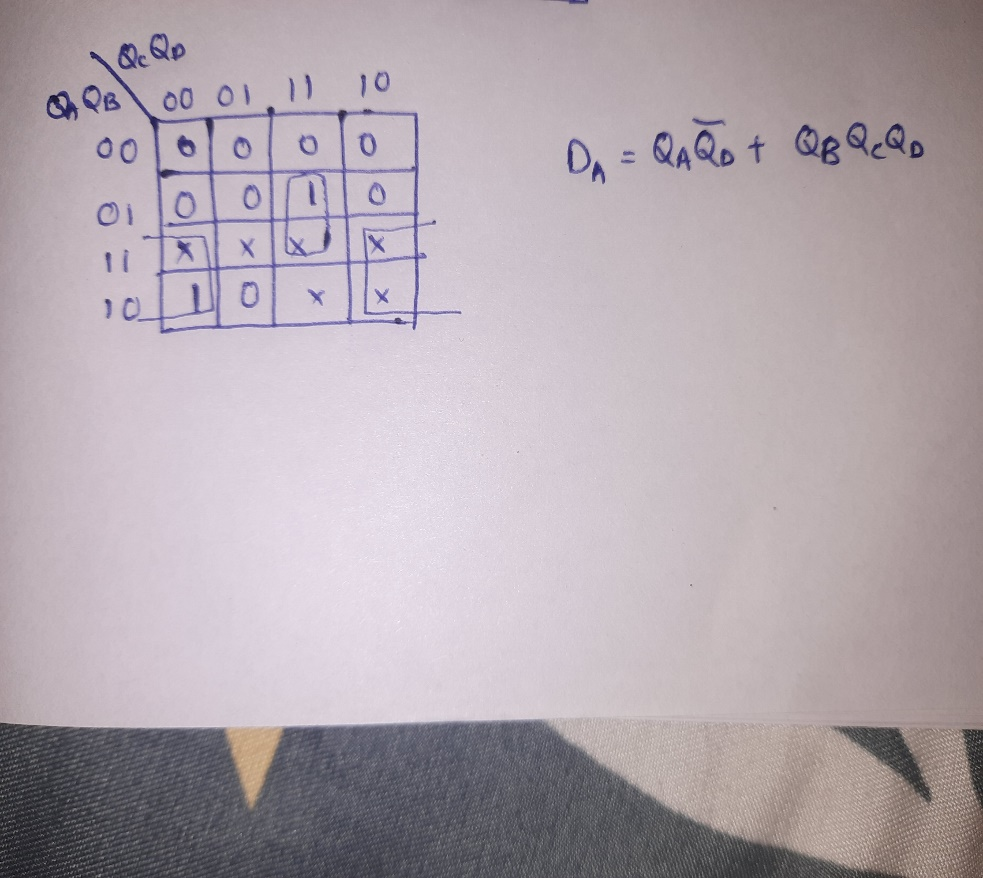 QcQD
QAQB 00 01 11 10
00 0 0 0 0
01 0 0 1 0
11 x x x x
10 1 0 x x
DA = QAQ̅D + QBQcQD